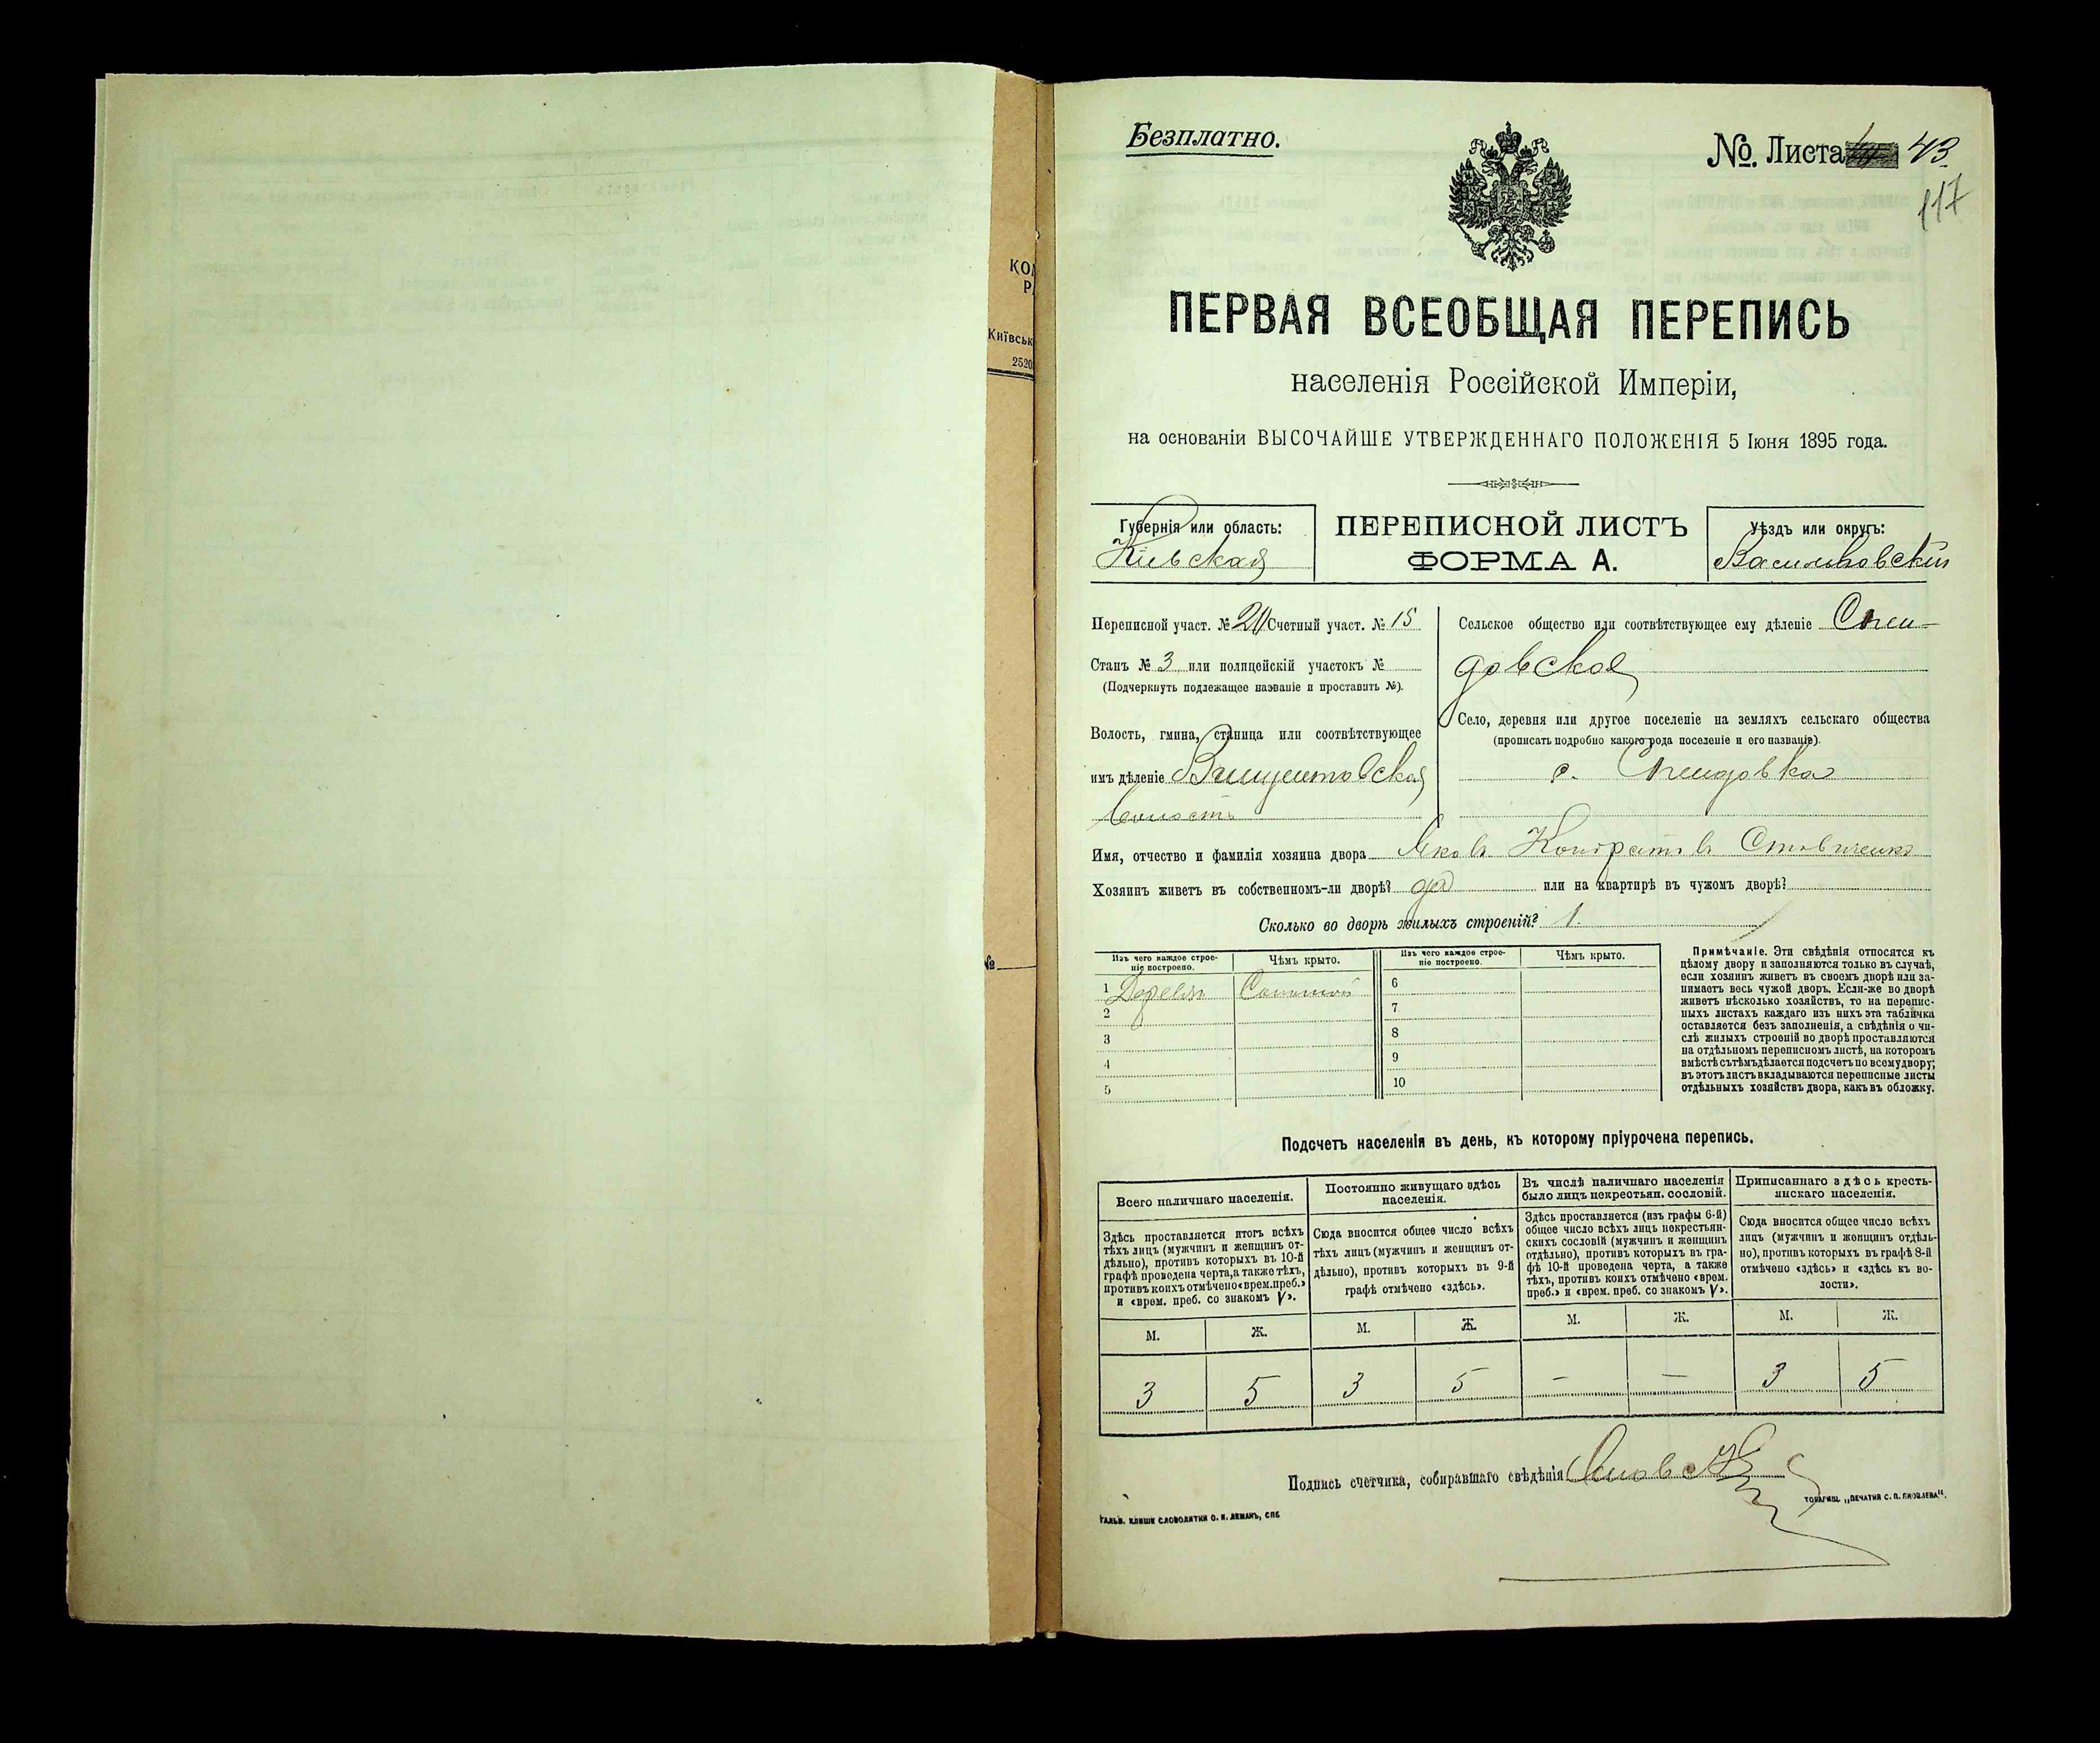 КОМ
Київськ
2520
№
Безплатно.
№. Листа 43
117
ПЕРВАЯ ВСЕОБЩАЯ ПЕРЕПИСЬ
населенія Россійской Имперіи,
на основаніи ВЫСОЧАЙШЕ УТВЕРЖДЕННАГО ПОЛОЖЕНІЯ 5 Іюня 1895 года.
Губернія или область:
Кіевская
ПЕРЕПИСНОЙ ЛИСТЪ
ФОРМА А.
Уѣздъ или округъ:
Васильковскій
Переписной участ. № Счетный участ. № 15
Станъ № 3 или полицейскій участокъ №
(Подчеркнуть подлежащее названіе и проставить №).
Волость, гмина, станица или соотвѣтствующее
имъ дѣленіе Винцентовская
волость
Сельское общество или соотвѣтствующее ему дѣленіе Спен-
довское
Село, деревня или другое поселеніе на земляхъ сельскаго общества
(прописать подробно какого рода поселеніе и его названіе).
с. Спендовка
Имя, отчество и фамилія хозяина двора Яковъ Кондратовъ
Хозяинъ живетъ въ собственномъ-ли дворѣ? да или на квартирѣ въ чужомъ дворѣ?
Сколько во дворѣ жилыхъ строеній? 1.
Изъ чего каждое строе-
ніе построено.
Чѣмъ крыто.
Изъ чего каждое строе-
ніе построено.
Чѣмъ крыто.
1 Дерева Соломой
2
3
4
5
6
7
8
9
10
Примѣчаніе. Эти свѣдѣнія относятся къ
цѣлому двору и заполняются только въ случаѣ,
если хозяинъ живетъ въ своемъ дворѣ или за-
нимаетъ весь чужой дворъ. Если-же во дворѣ
живетъ нѣсколько хозяйствъ, то на перепис-
ныхъ листахъ каждаго изъ нихъ эта табличка
оставляется безъ заполненія, а свѣдѣнія о чи-
слѣ жилыхъ строеній во дворѣ проставляются
на отдѣльномъ переписномъ листѣ, на которомъ
вмѣстѣ съ тѣмъ дѣлается подсчетъ по всему двору;
въ этотъ листъ вкладываются переписные листы
отдѣльныхъ хозяйствъ двора, какъ въ обложку.
Подсчетъ населенія въ день, къ которому пріурочена перепись.
Всего наличнаго населенія.
Здѣсь проставляется итогъ всѣхъ
тѣхъ лицъ (мужчинъ и женщинъ от-
дѣльно), противъ которыхъ въ 10-й
графѣ проведена черта, а также тѣхъ,
противъ коихъ отмѣчено «врем. преб.»
и «врем. преб. со знакомъ V».
Постоянно живущаго здѣсь
населенія.
Сюда вносится общее число всѣхъ
тѣхъ лицъ (мужчинъ и женщинъ от-
дѣльно), противъ которыхъ въ 9-й
графѣ отмѣчено «здѣсь».
Въ числѣ наличнаго населенія
было лицъ некрестьян. сословій.
Здѣсь проставляется (изъ графы 6-й)
общее число всѣхъ лицъ некрестьян-
скихъ сословій (мужчинъ и женщинъ
отдѣльно), противъ которыхъ въ гра-
фѣ 10-й проведена черта, а также
тѣхъ, противъ коихъ отмѣчено «врем.
преб.» и «врем. преб. со знакомъ V».
Приписаннаго здѣсь кресть-
янскаго населенія.
Сюда вносится общее число всѣхъ
лицъ (мужчинъ и женщинъ отдѣль-
но), противъ которыхъ въ графѣ 8-й
отмѣчено «здѣсь» и «здѣсь къ во-
лости».
М. Ж. М. Ж. М. Ж. М. Ж.
3 5 3 5 — — 3 5
Подпись счетчика, собиравшаго свѣдѣнія
ГАЛЬВ. КЛИШЕ СЛОВОЛИТНИ О. И. ЛЕМАНЪ, СПБ
ТОВАРИЩ. „ПЕЧАТНЯ С. П. ЯКОВЛЕВА".